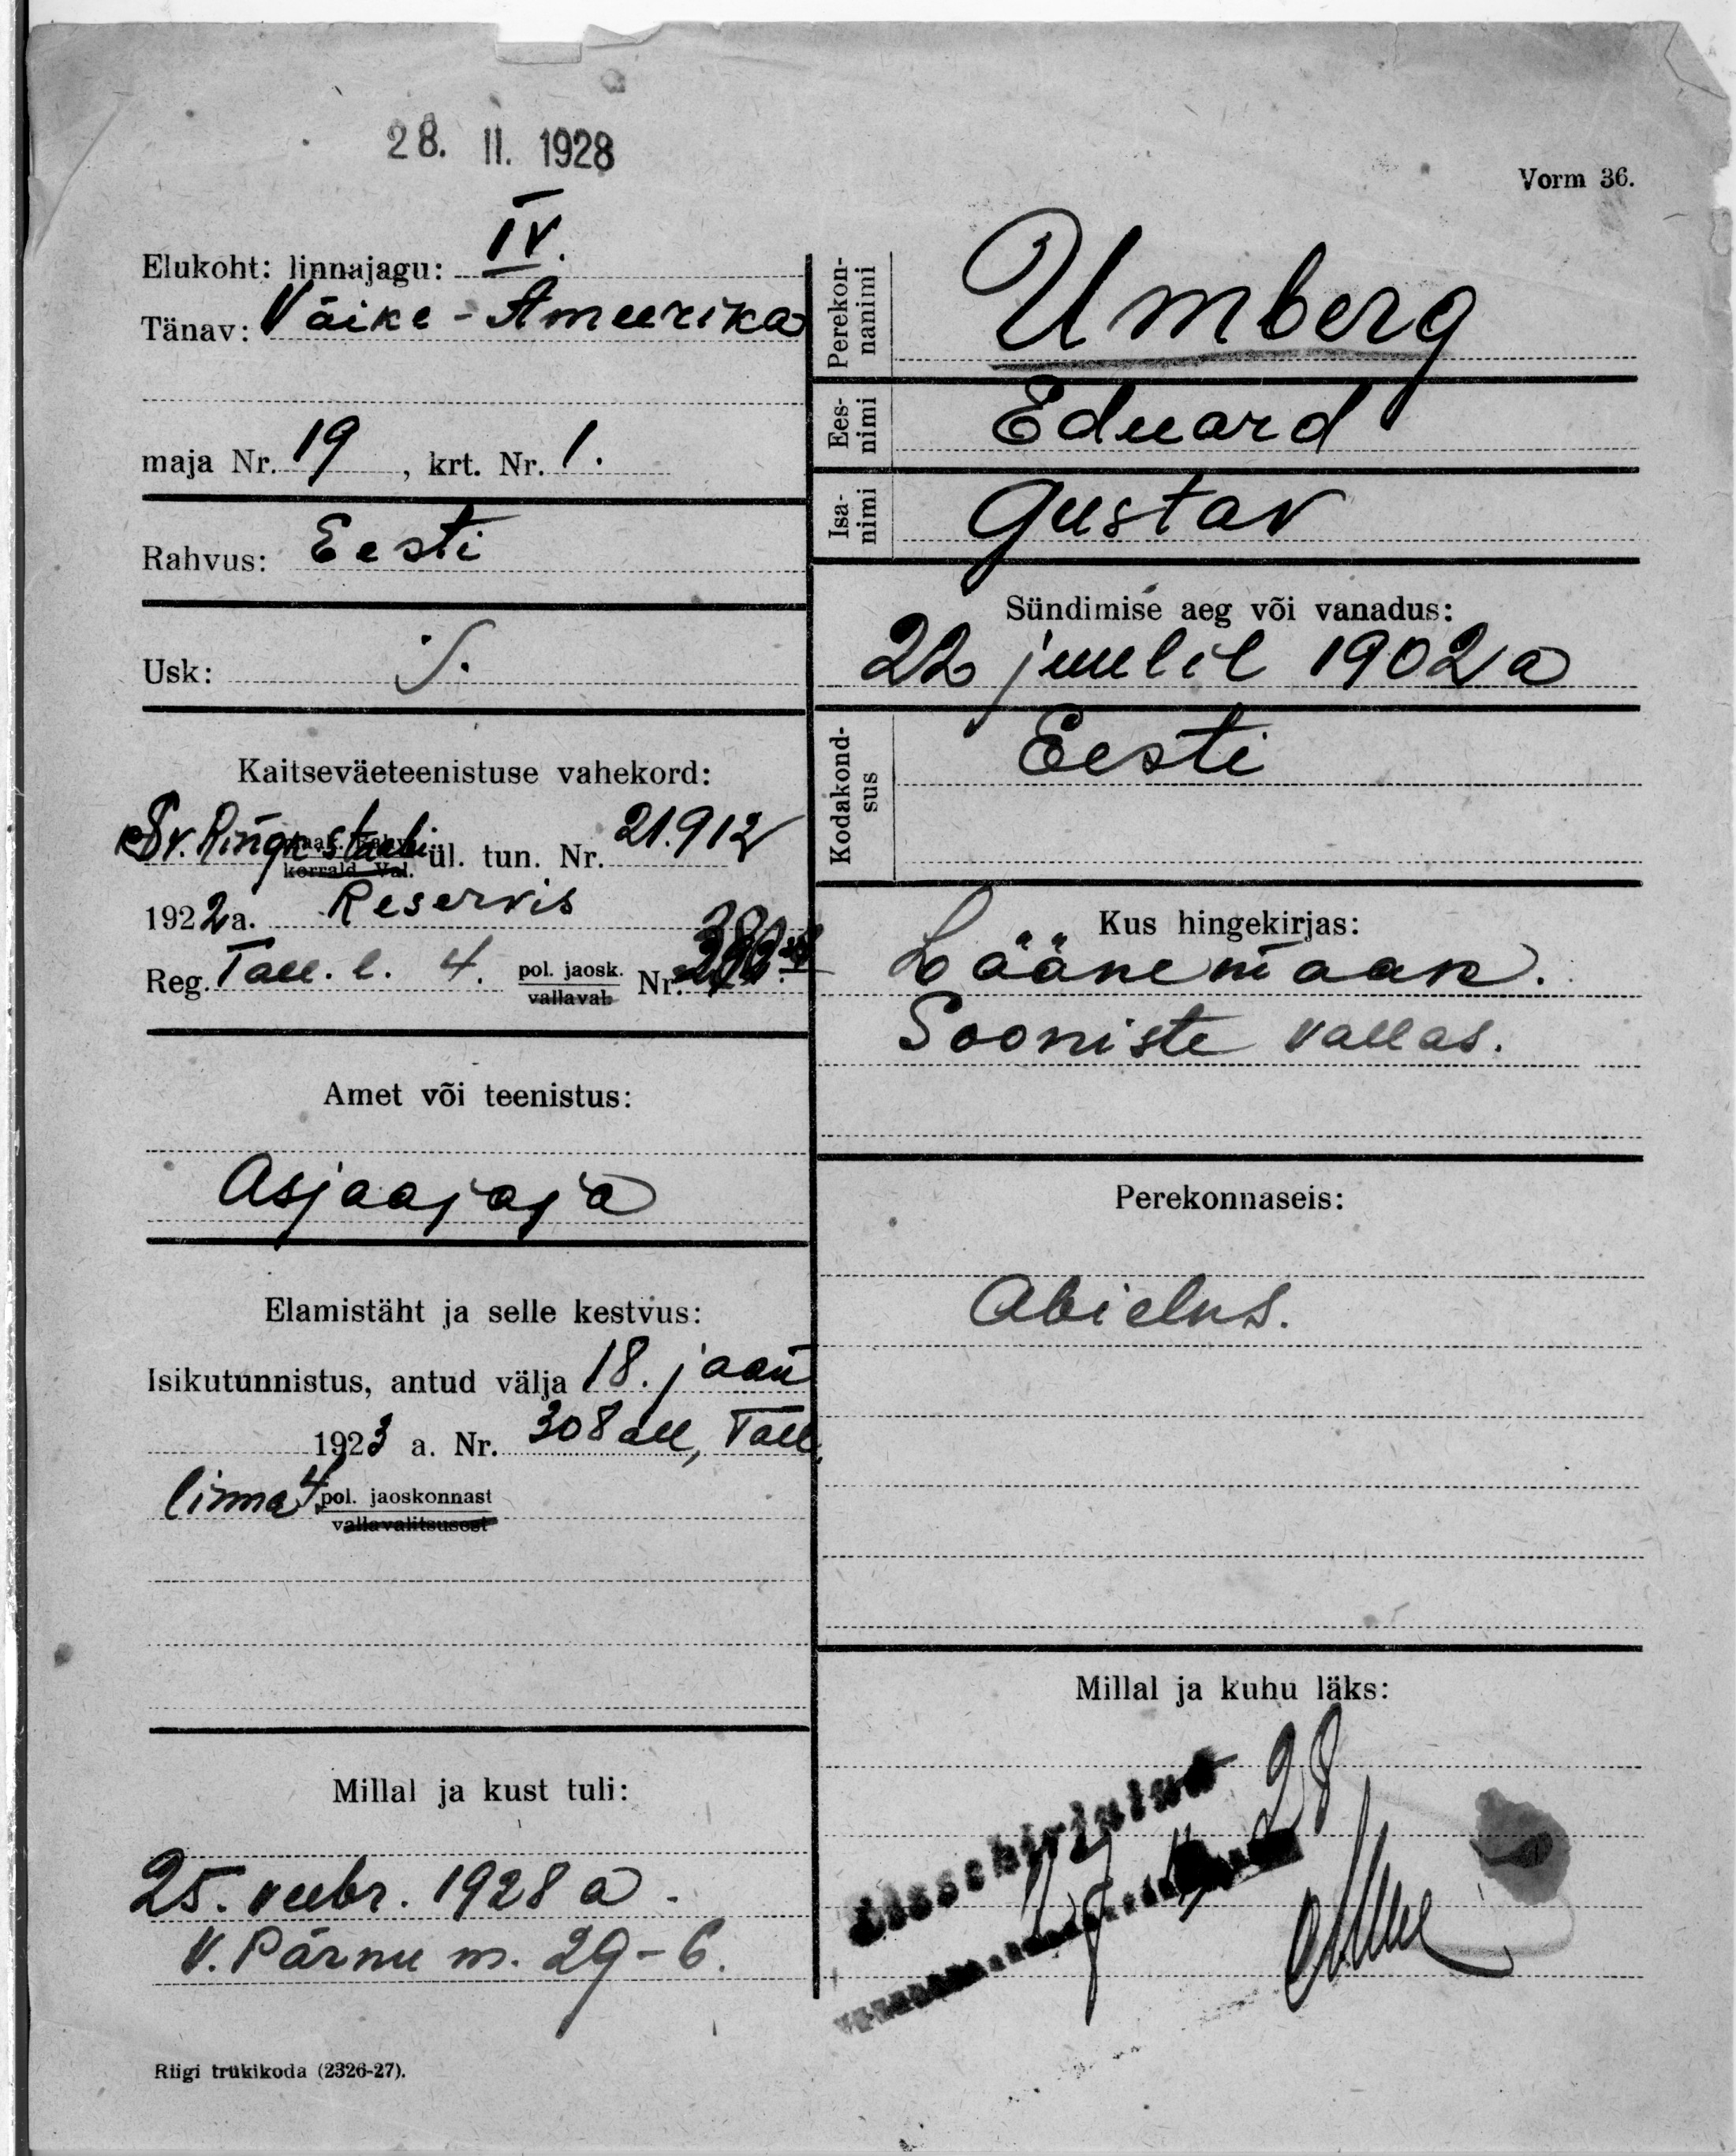 28. II. 1928
Vorm 36.
Elukoht: linnajagu: IV.
Tänav: Väike-Ameerika
maja Nr. 19, krt. Nr. 1.
Rahvus: Eesti
Usk:
Kaitseväeteenistuse vahekord:
Ringk. staabi ül. tun. Nr. 21.912
korrald. Val.
1922a. Reservis
Reg. Tall. l. 4. pol. jaosk. Nr.
vallavab
Amet või teenistus:
Asjaajaja
Elamistäht ja selle kestvus:
Isikutunnistus, antud välja 18. jaan
1923 a. Nr. 308 all, Tall.
linna 4. pol. jaoskonnast
vallavalitsusest
Millal ja kust tuli:
25. veebr. 1928 a.
V. Pärnu m. 29-6.
Riigi trükikoda (2326-27).
Perekon-
nanimi
Umberg
Ees-
nimi
Eduard
Isa-
nimi
Gustav
Sündimise aeg või vanadus:
22 juulil 1902 a
Kodakond-
sus
Eesti
Kus hingekirjas:
Läänemaak.
Sooniste vallas.
Perekonnaseis:
Abielus.
Millal ja kuhu läks:
Sissekirjutud
28